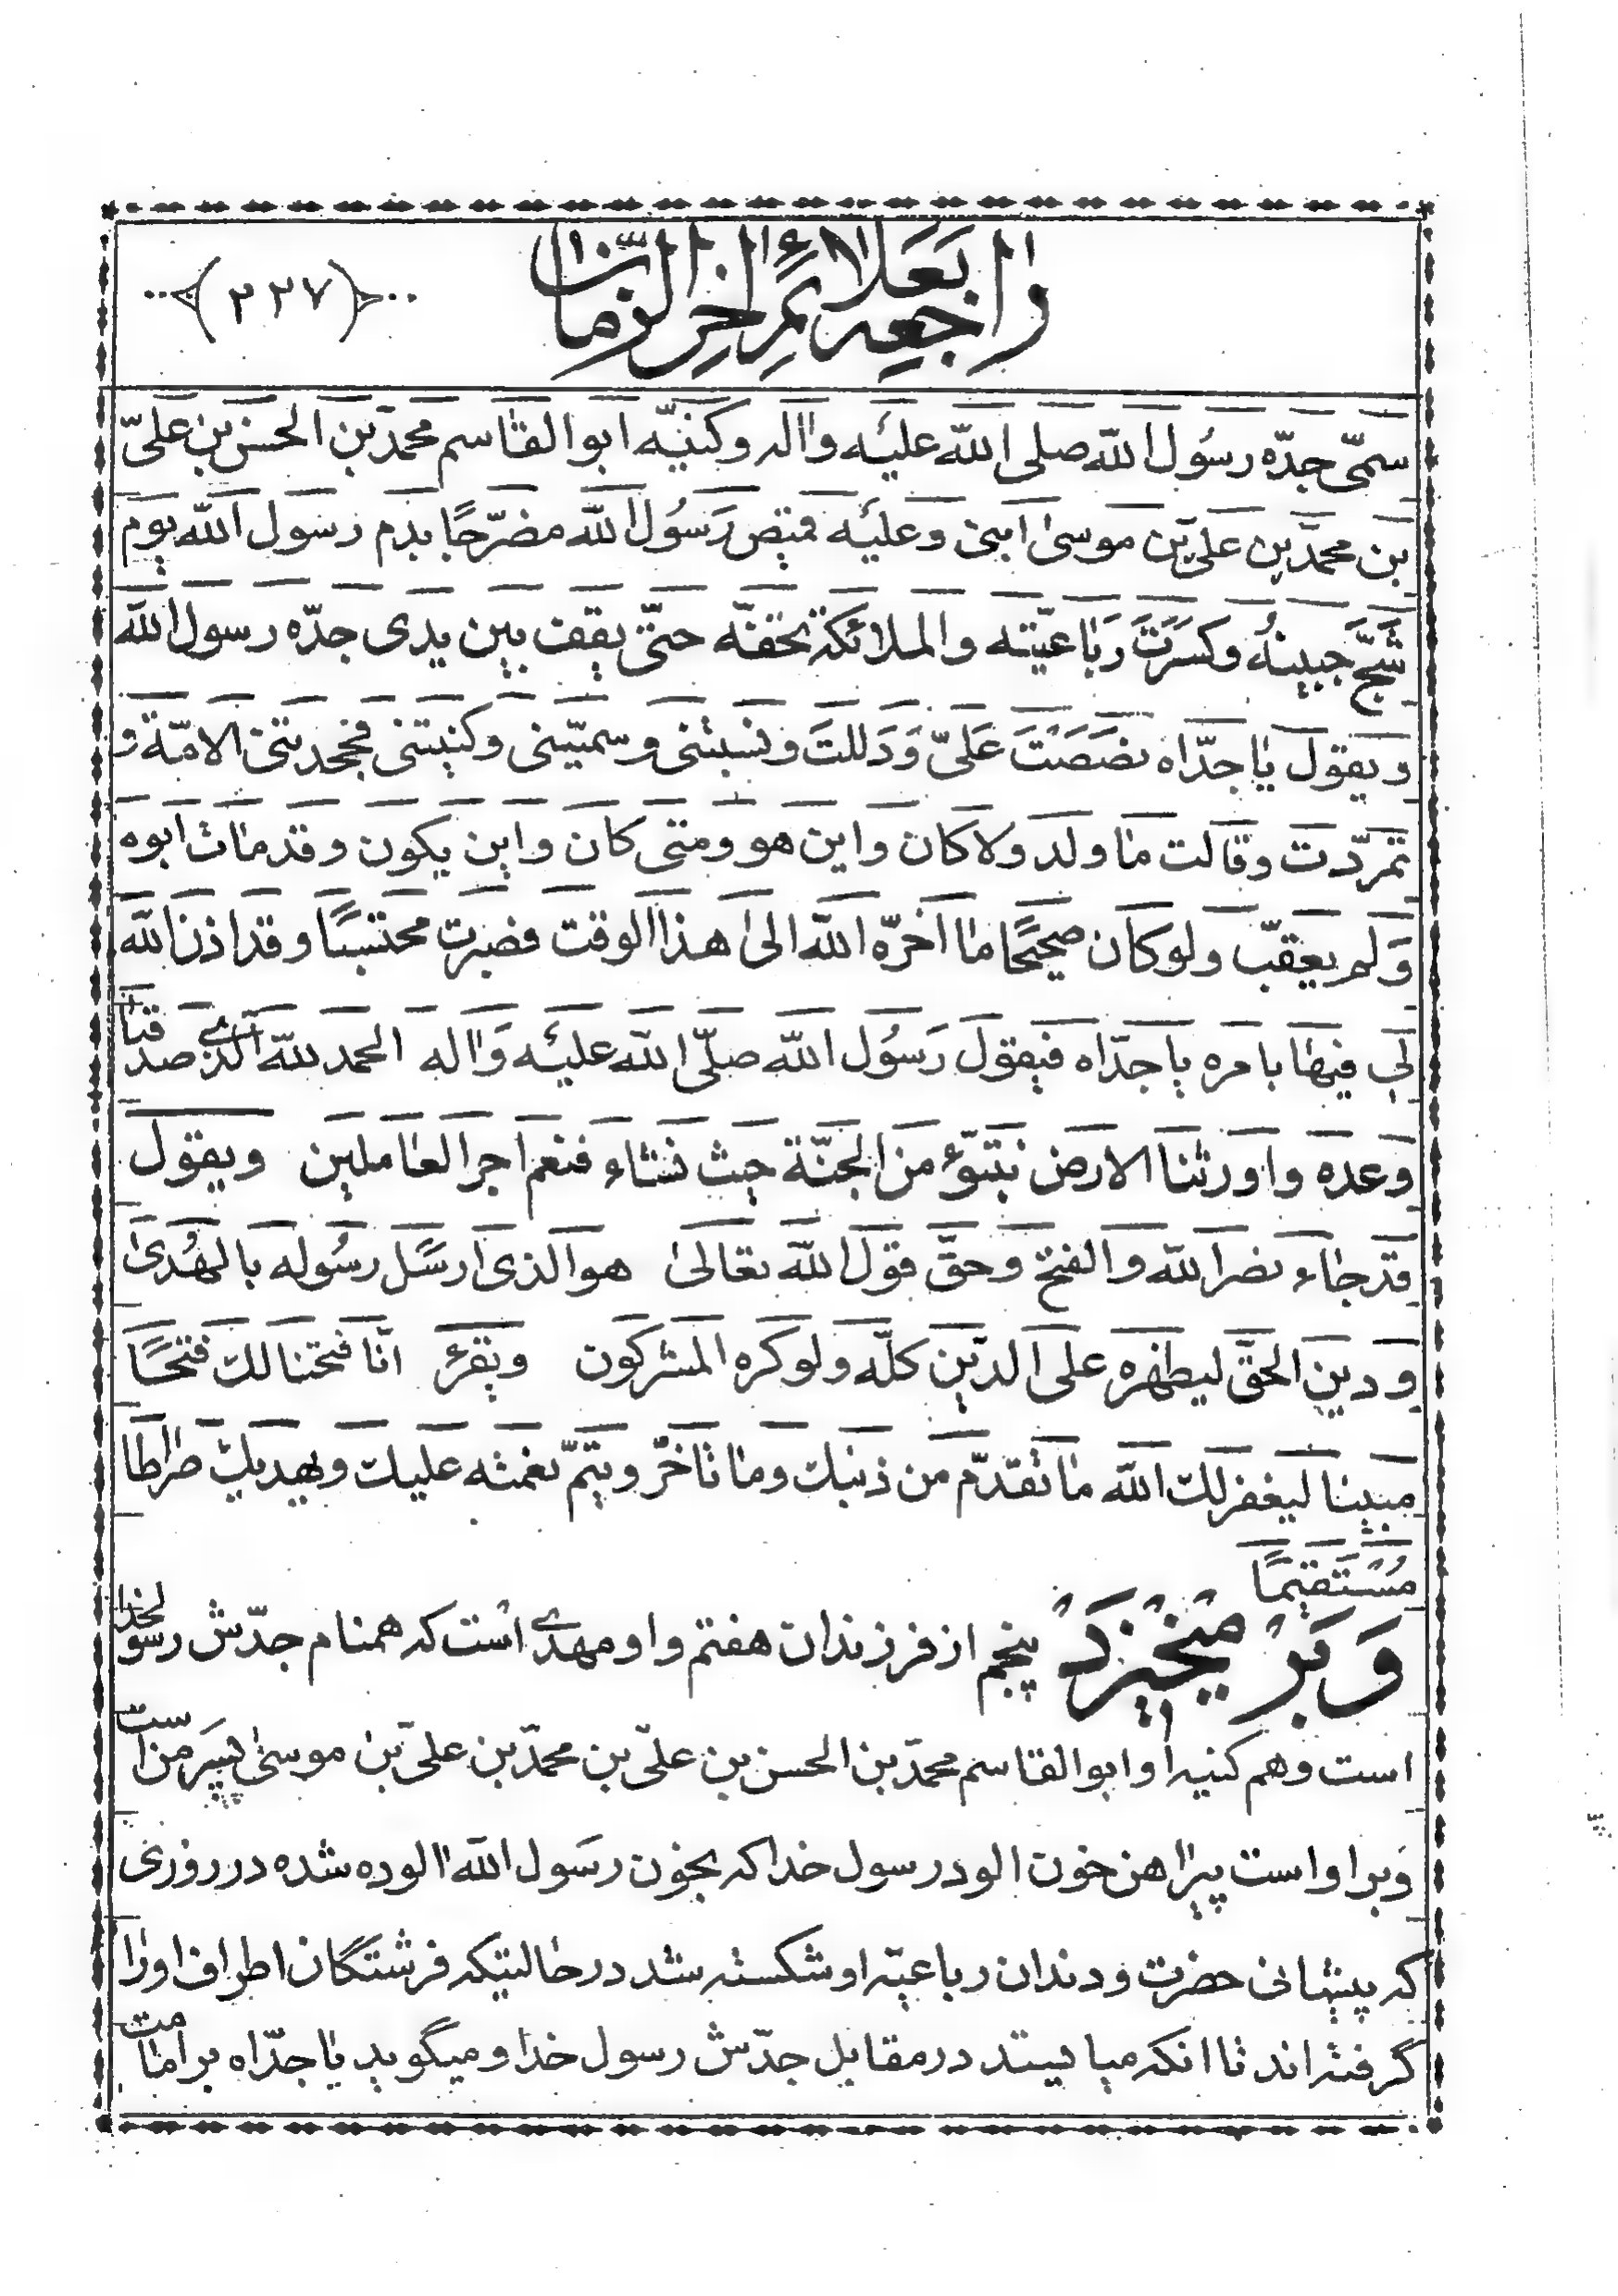 راجعه بعلائم اخر الزمان
(۲۲۷)
سمّى جدّه رسُول الله صلى الله عليه واله وكنيّه ابو القاسم محمّد بن الحسن بن علىّ
بن محمّد بن على بن موسىٰ ابنى وعليه قميص رَسُول الله مضرّجًا بدم رسول الله يوم
شَجَّ جبينهُ وكسَرَت رَباعيّته والملائكة تحفّه حتّى يقف بين يدى جدّه رسول الله
ويقول يا جدّاه نصَصَت عَلىّ وَدَللتَ ونسبتنى وسميّتنى وكنيتنى فجحدتنى الامّة و
تمرّدت وقالت ما ولد ولا كان واين هو ومتى كان واين يكون وقد مات ابوه
وَلم يعقّب ولو كان صحيحًا ما اخّره الله الى هذا الوقت فصبرت محتسبًا وقد اذن الله
لى فيها بامره يا جدّاه فيقول رَسُول الله صلّى الله عليه وَاله الحمد لله الّذى صدقنا
وعده واورثنا الارض نتبوّء من الجنّة حيث نشاء فنعم اجر العاملين ويقول
قد جاء نصر الله والفتح وحقّ قول الله تعالىٰ هو الذى ارسَل رسُوله بالهُدىٰ
و دين الحقّ ليظهره على الدّين كلّه ولو كره المشركون ويقرء انّا فتحنا لك فتحًا
مبينا ليغفر لك الله ما تقدّم من ذنبك وما تاخّر ويتمّ نعمته عليك ويهديك صراطا
مُستَقيمًا
وَ بَرْ ميخيزد پنجم از فرزندان هفتم واو مهدى است كه همنام جدّش رسولخدا
است وهم كنيه او ابوالقاسم محمّد بن الحسن بن علىّ بن محمّد بن علىّ بن موسىٰ پسَر من است
وَبر او است پيراهن خون الود رسول خدا كه بخون رسَول الله الوده شده در روزى
كه پيشانى حضرت ودندان رباعيّه او شكسته شد در حالتيكه فرشتگان اطراف اورا
گرفته اند تا انكه ميايستد در مقابل جدّش رسول خدا وميگويد يا جدّاه بر امامت